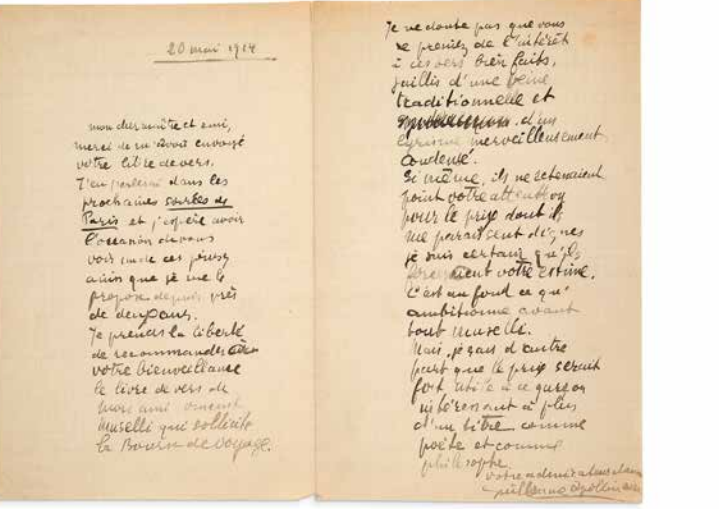 20 mai 1914
mon cher maître et ami,
merci de m'avoir envoyé
votre livre de vers.
J'en parlerai dans les
prochaines soirées de
Paris et j'espère avoir
l'occasion de vous
voir un de ces jours
ainsi que je me le
propose depuis près
de deux ans.
Je prends la liberté
de recommander à
votre bienveillance
le livre de vers de
mon ami Vincent
Muselli qui sollicite
la Bourse de Voyage.
Je ne doute pas que vous
ne preniez de l'intérêt
à ces vers bien faits,
jaillis d'une veine
traditionnelle et
d'un
lyrisme merveilleusement
condensé.
Si même, ils ne retenaient
point votre attention
pour le prix dont ils
me paraissent dignes
je suis certain qu'ils
forceraient votre estime.
C'est au fond ce qu'
ambitionne avant
tout Muselli.
Mais, je sais d'autre
part que le prix serait
fort utile à ce garçon
intéressant à plus
d'un titre comme
poète et comme
philosophe.
votre admirateur
Guillaume Apollinaire